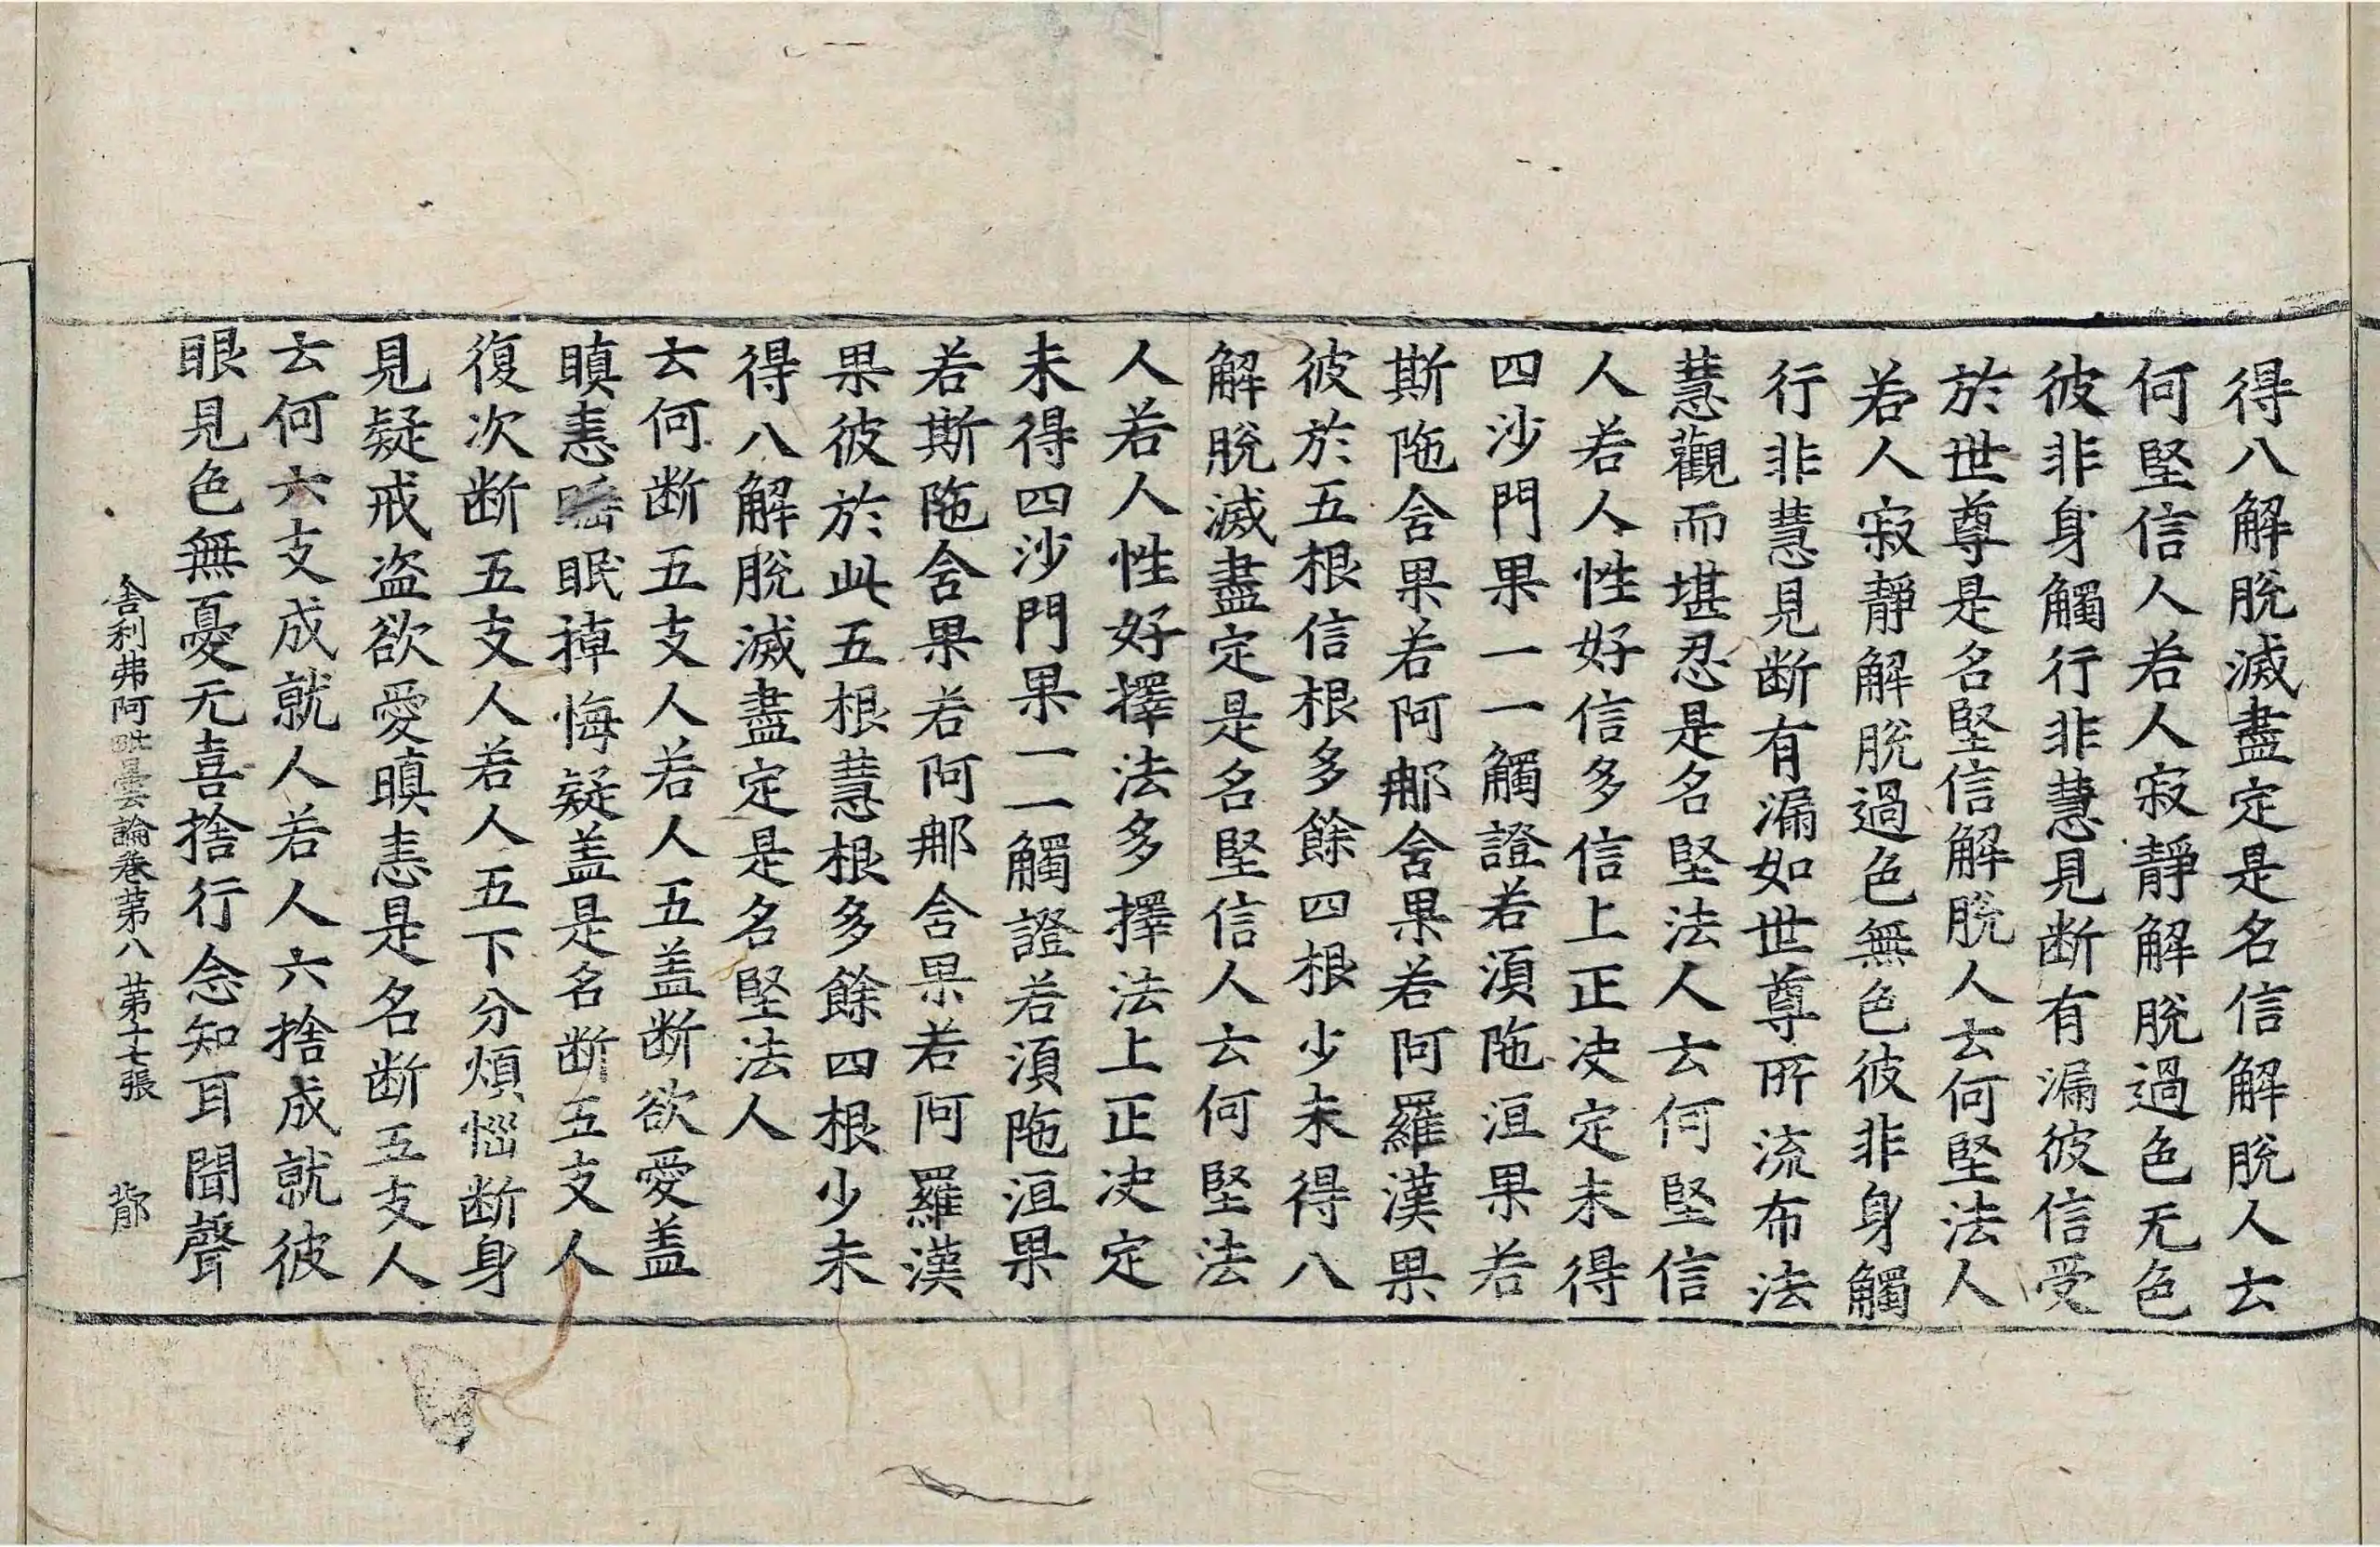 得八解脫滅盡定是名信解脫人云
何堅信人若人寂靜解脫過色无色
彼非身觸行非慧見断有漏彼信受
於世尊是名堅信解脫人云何堅法人
若人寂靜解脫過色無色彼非身觸
行非慧見断有漏如世尊所流布法
慧觀而堪忍是名堅法人云何堅信
人若人性好信多信上正决定未得
四沙門果一一觸證若須陁洹果若
斯陁含果若阿那含果若阿羅漢果
彼於五根信根多餘四根少未得八
解脫滅盡定是名堅信人云何堅法
人若人性好擇法多擇法上正决定
未得四沙門果一一觸證若須陁洹果
若斯陁含果若阿那含果若阿羅漢
果彼於此五根慧根多餘四根少未
得八解脫滅盡定是名堅法人
云何断五支人若人五盖断欲愛盖
瞋恚睡眠掉悔疑盖是名断五支人
復次断五支人若人五下分煩惱断身
見疑戒盜欲愛瞋恚是名断五支人
云何六支成就人若人六捨成就彼
眼見色無憂无喜捨行念知耳聞聲
舍利弗阿毗曇論卷苐八 苐十七張